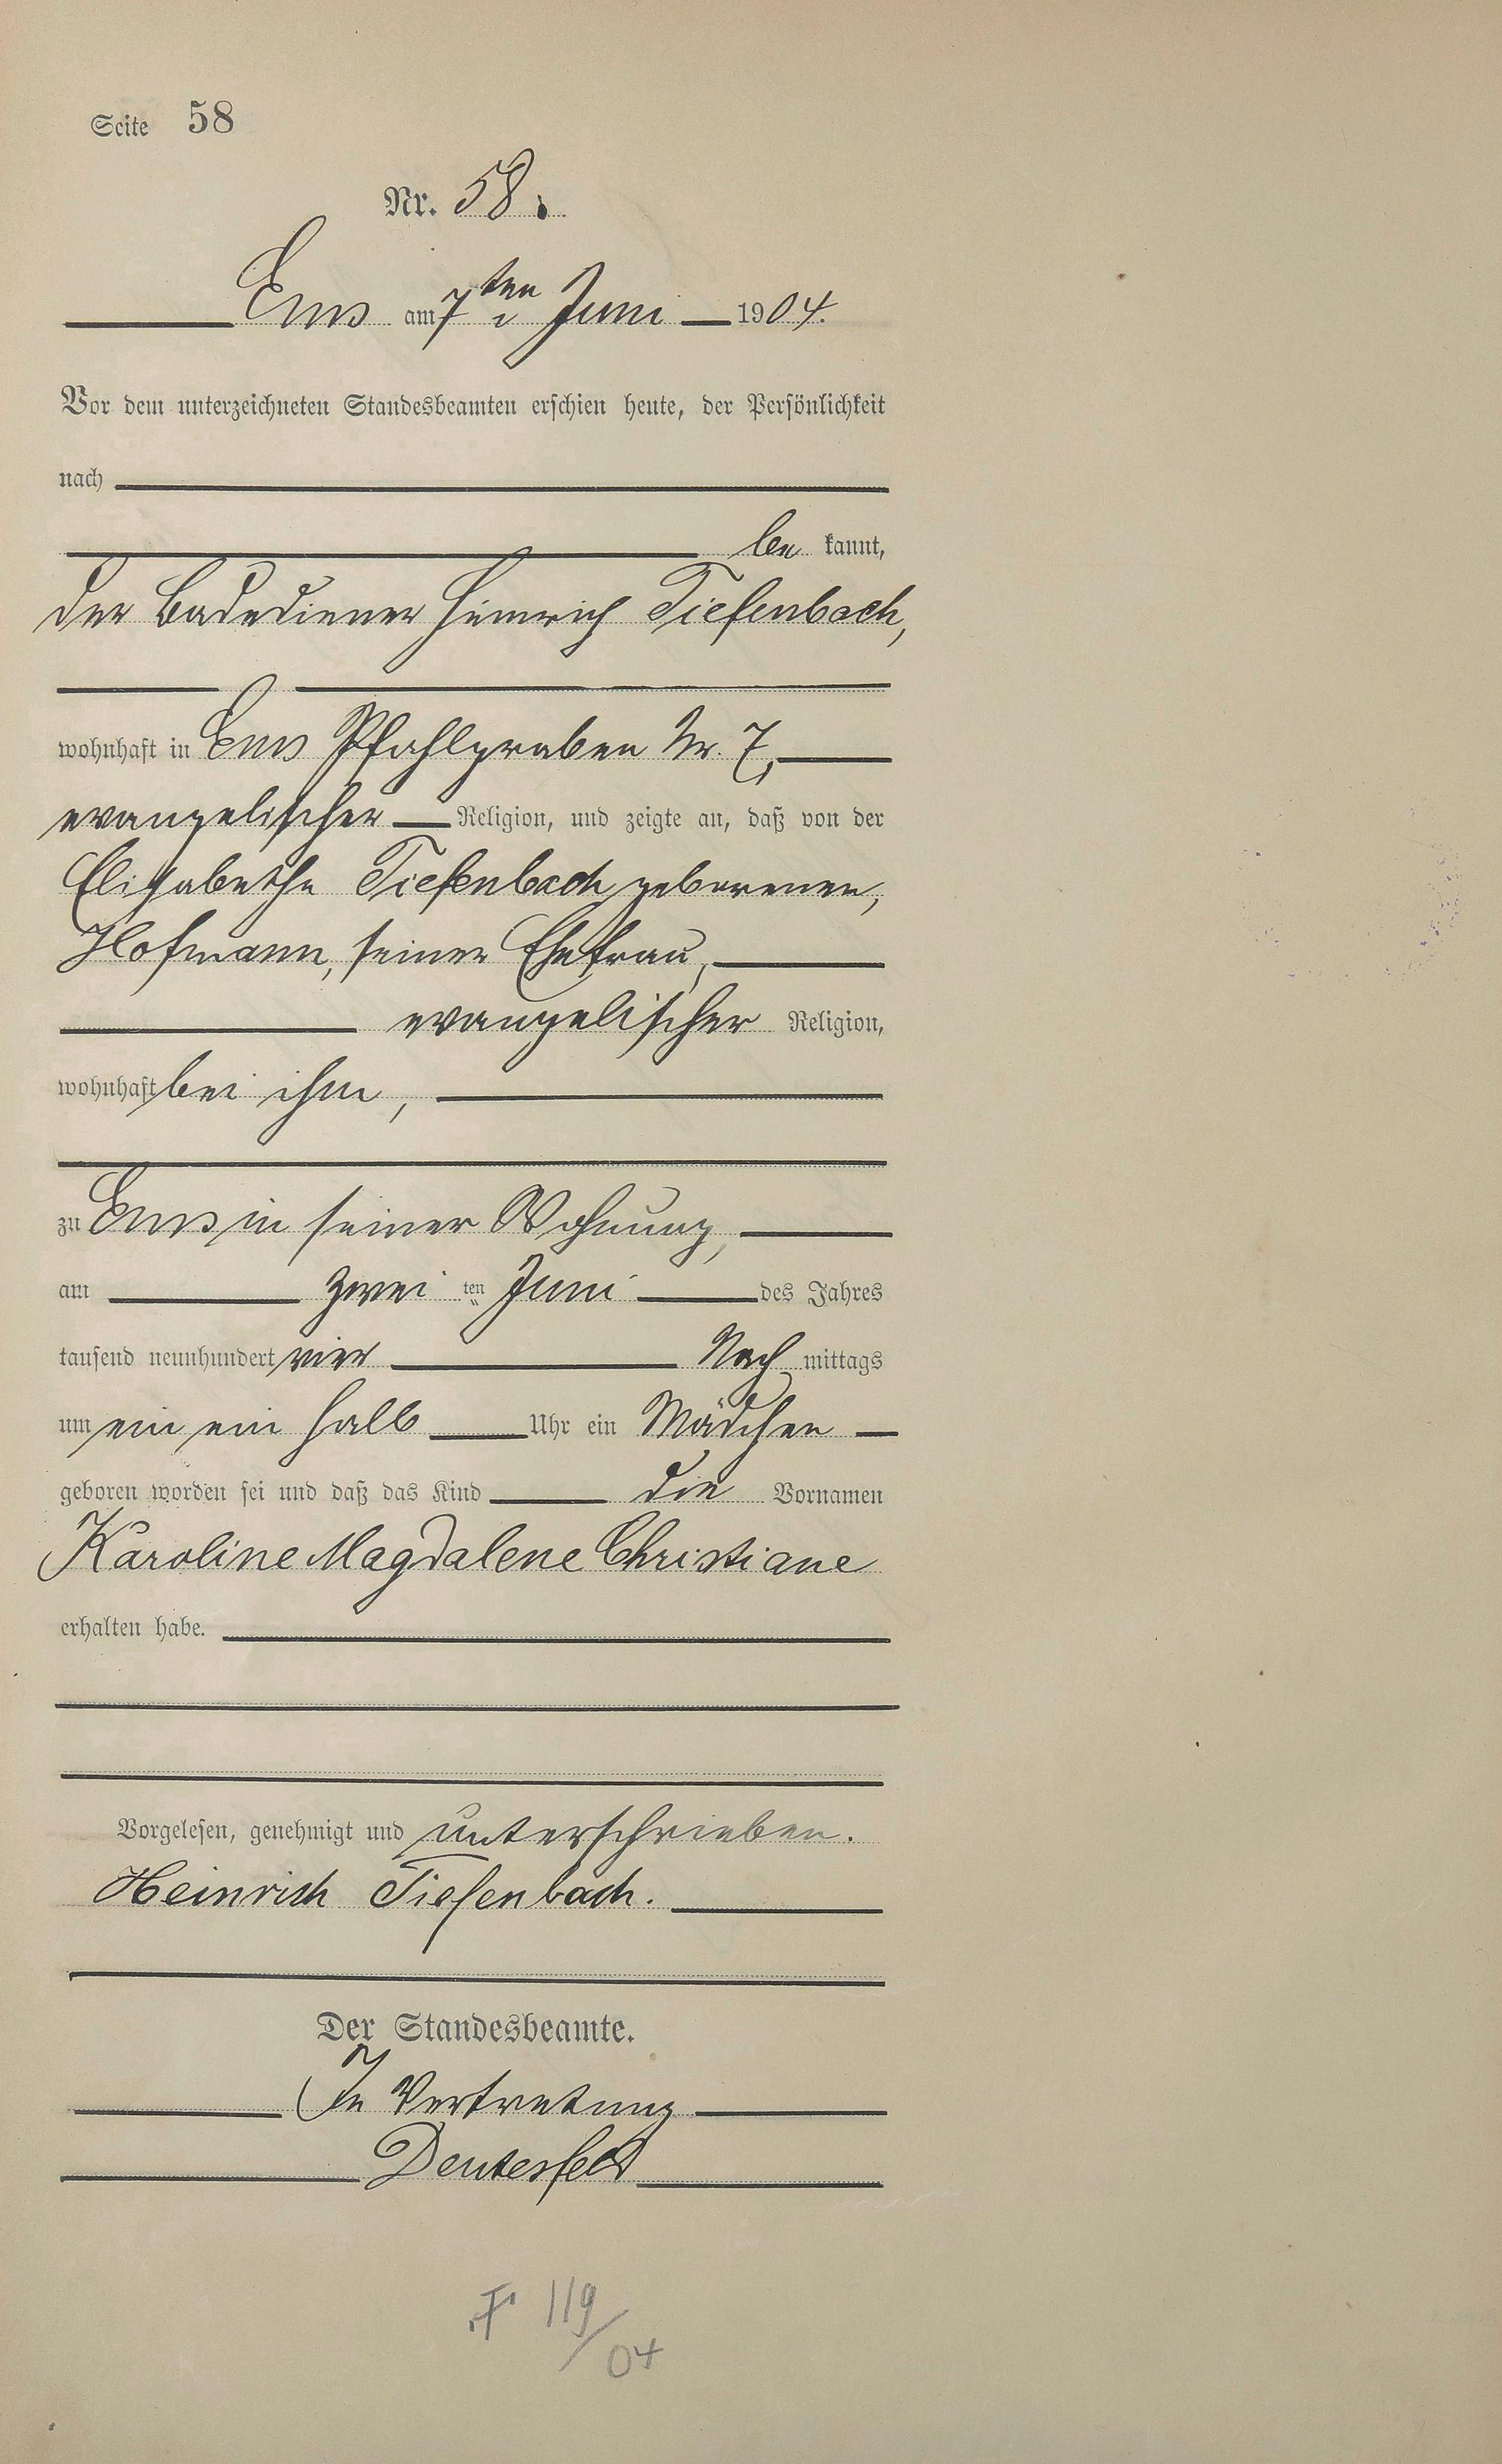 Seite 58
Nr. 58.
Ems am 7ten Juni 1904.
Vor dem unterzeichneten Standesbeamten erschien heute, der Persönlichkeit
nach
be kannt,
der Badediener Heinrich Tiefenbach,
wohnhaft in Ems Pfahlgraben Nr. 7,
evangelischer Religion, und zeigte an, daß von der
Elisabethe Tiefenbach geborenen,
Hofmann, seiner Ehefrau,
evangelischer Religion,
wohnhaft bei ihm,
zu Ems in seiner Wohnung,
am zwei ten Juni des Jahres
tausend neunhundert vier Nach mittags
um ein ein halb Uhr ein Mädchen
geboren worden sei und daß das Kind die Vornamen
Karoline Magdalene Christiane
erhalten habe.
Vorgelesen, genehmigt und unterschrieben.
Heinrich Tiefenbach.
Der Standesbeamte.
In Vertretung
Deutesfeld
119/04